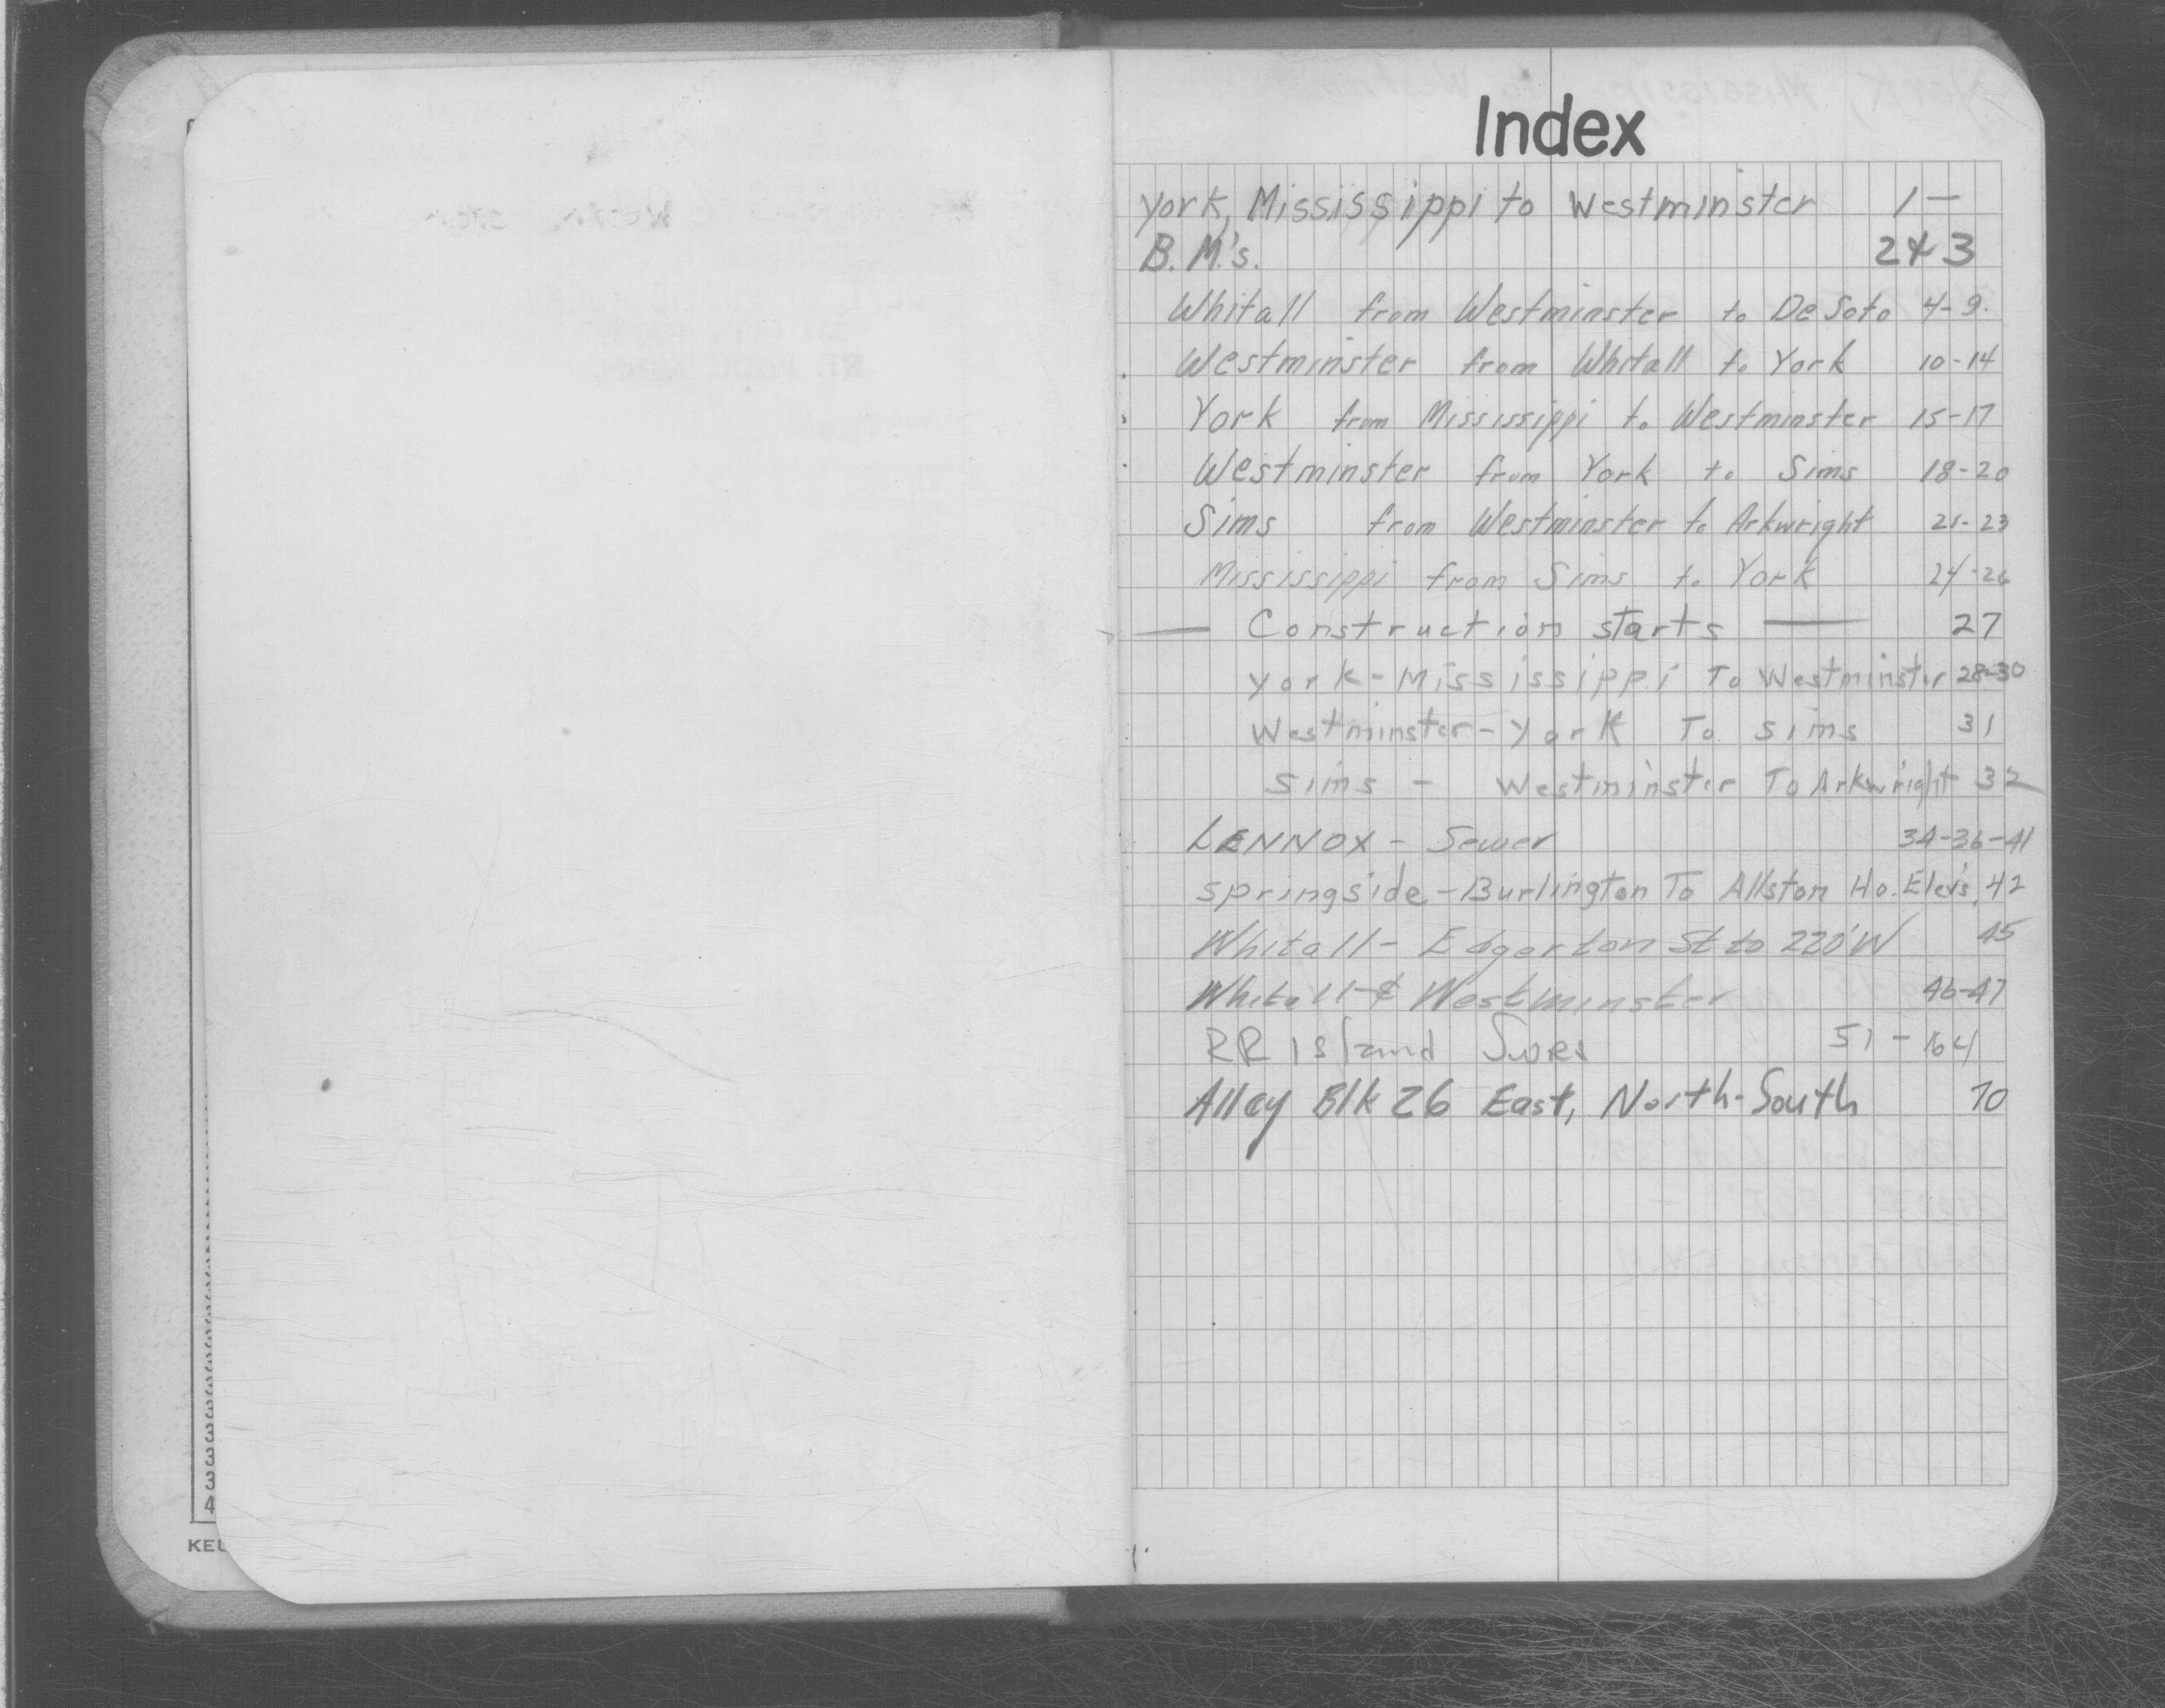 Index
York, Mississippi to Westminster 1-
B.M.'s. 2&3
Whitall from Westminster to DeSoto 4-9.
Westminster from Whitall to York 10-14
York from Mississippi to Westminster 15-17
Westminster from York to Sims 18-20
Sims from Westminster to Arkwright 21-23
Mississippi from Sims to York 24-26
— Construction starts — 27
York-Mississippi To Westminster 28-30
Westminster-York To Sims 31
Sims - Westminster To Arkwright 32
LENNOX - Sewer 34-36-41
Springside-Burlington To Allston Ho. Elev's. 42
Whitall- Edgerton St to 220'W 45
Whitall-& Westminster 46-47
RR Island 51-
Alley Blk 26 East, North-South 70
4
KEU